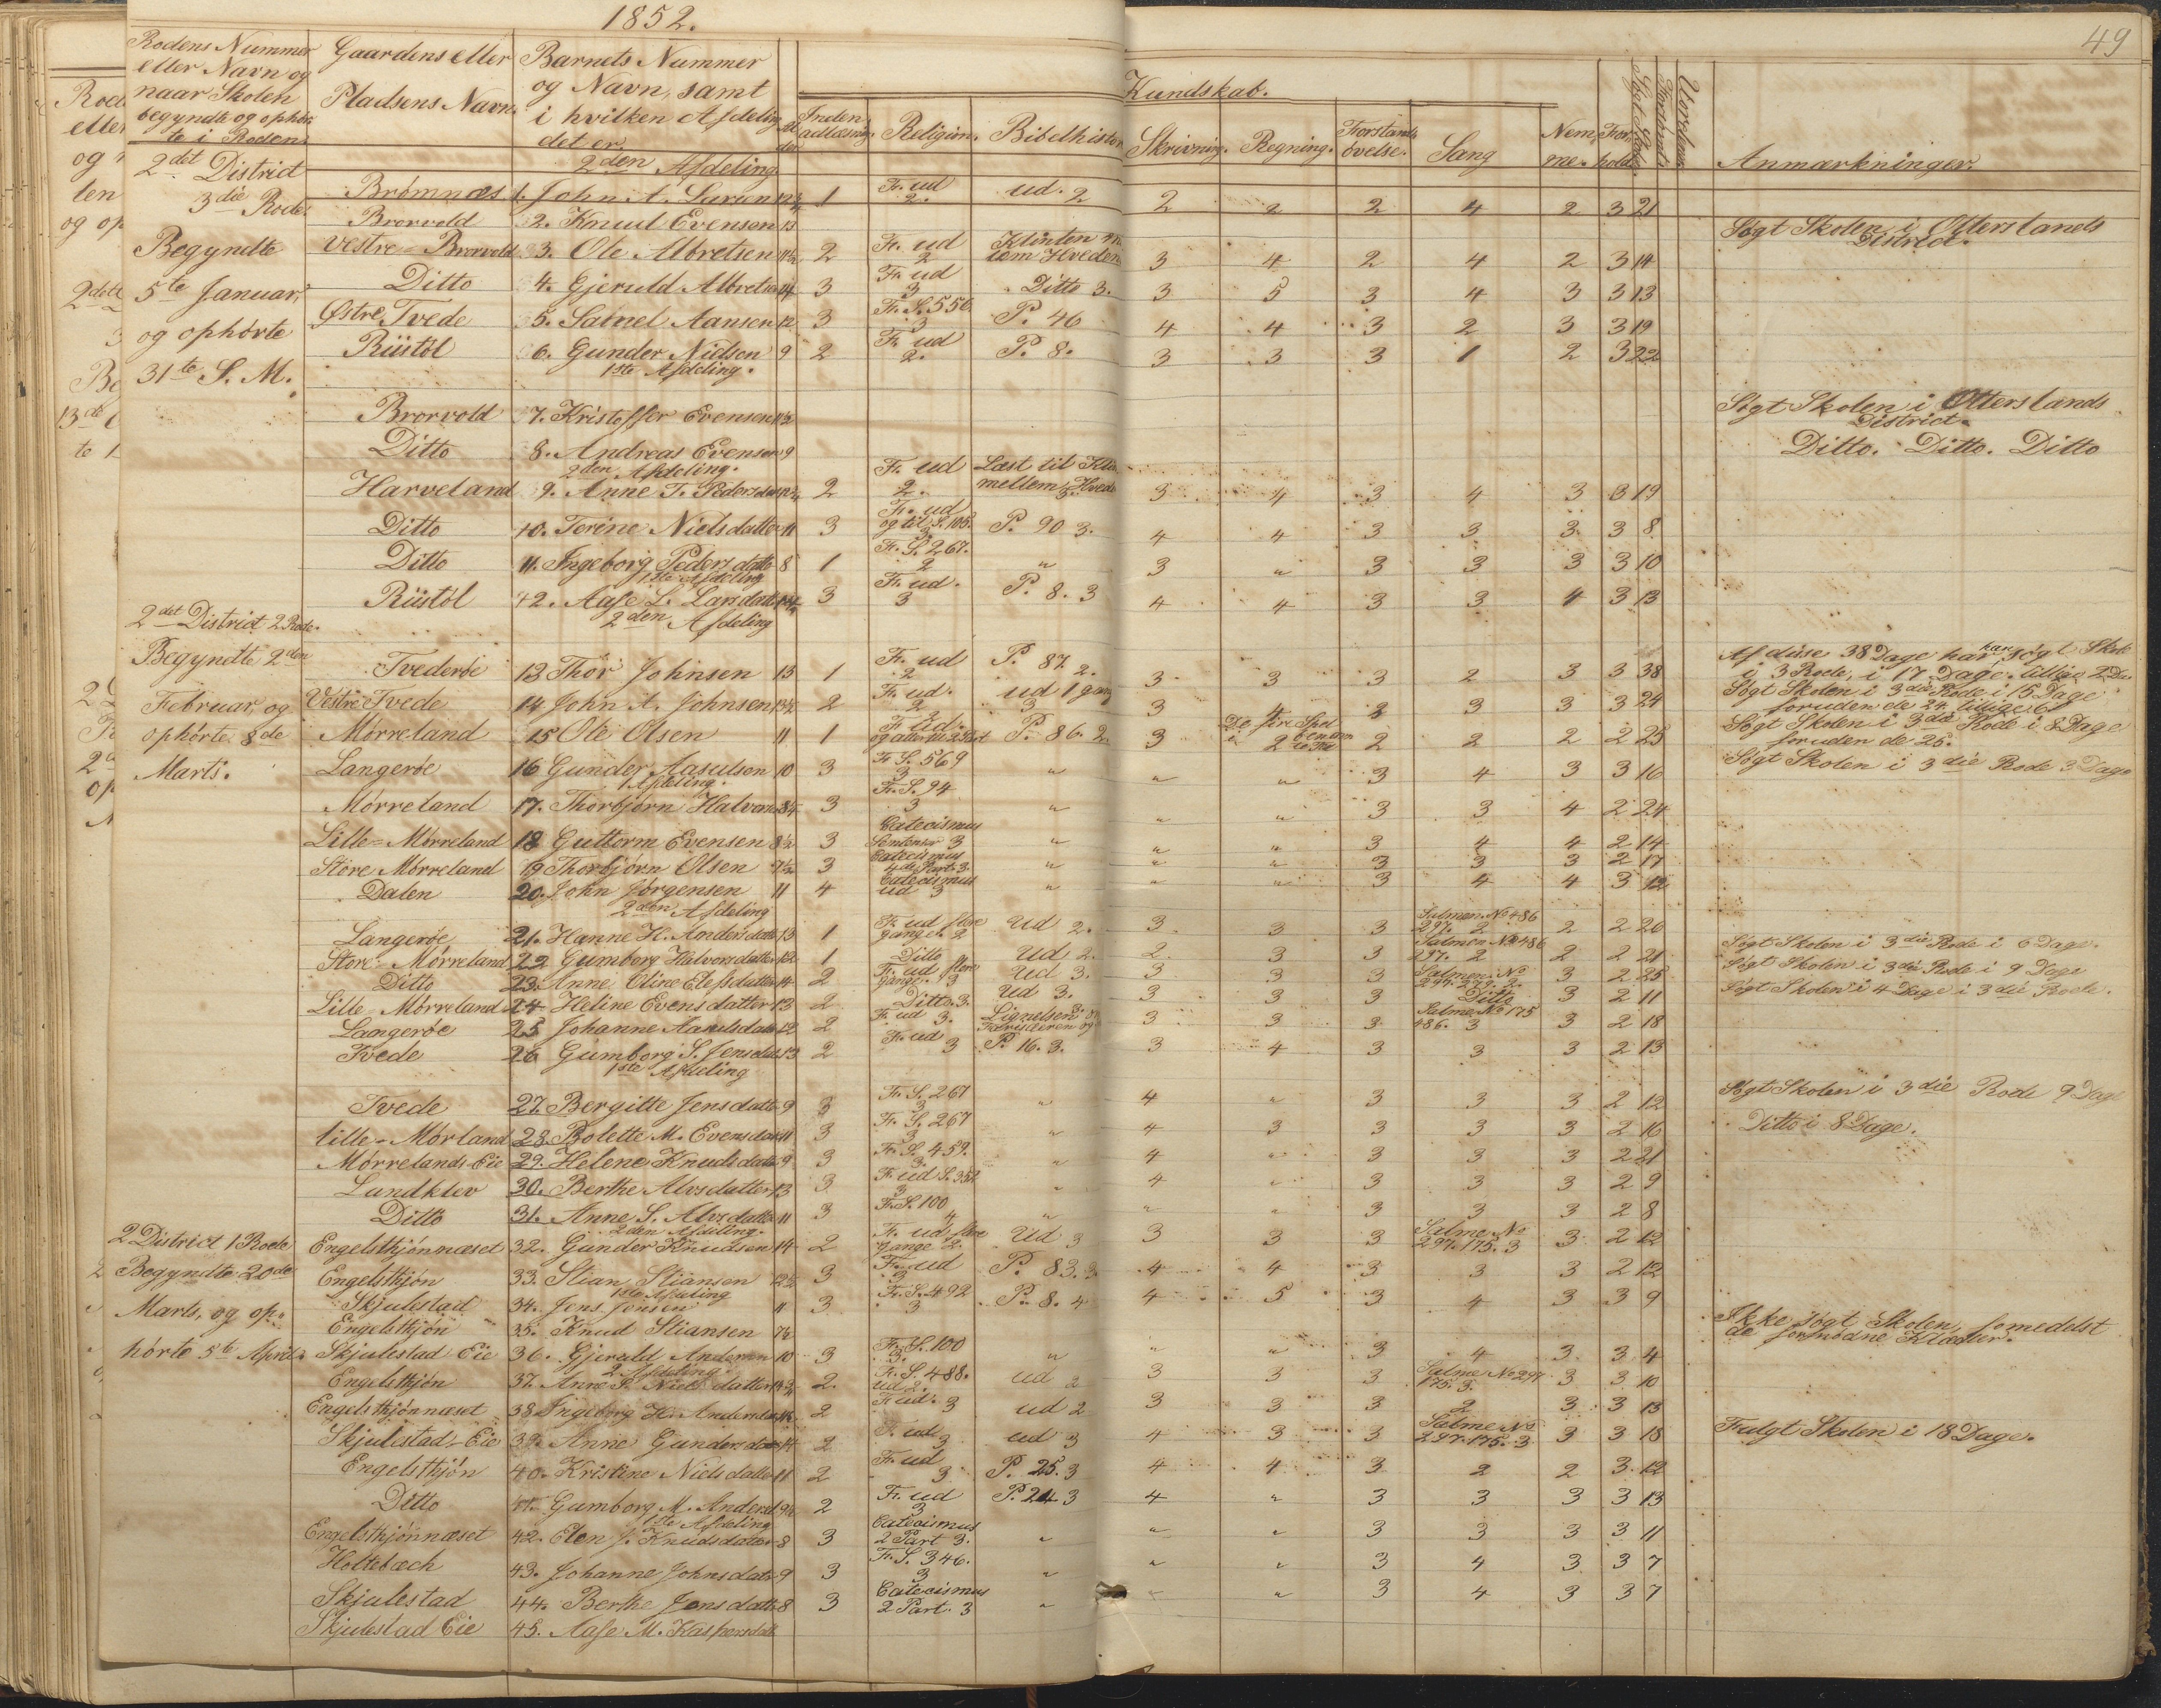 1852.
49
Rodens Nummer eller Navn og naar Skolen begyndte og ophørte i Roden.
Gaardens eller Pladsens Navn.
Barnets Nummer og Navn, samt i hvilken Afdeling det er
Kundskab.
Religion. Bibelhistor Skrivning. Regning. Forstands øvelse. Sang Nemme. Forhold. Anmærkninger.
2det District 3die Rode.
2den Afdeling
Brømnæs 1. John A. Larsen 1 Fr. ud 2. ud. 2 2 2 2 4 2 3 21
Brorvold 2. Knud Evensen 13 Søgt Skolen i Otterslands District.
Begyndte
Vestre-Brorvold 3. Ole Albretsen 2 Fr. ud 2 Klinten 3 4 2 4 2 3 14
5te Januar,
Ditto 4. Gjeruld Albretsen 14 3 Fr. ud 3 Ditto 3. 3 5 3 4 3 3 13
og ophørte
Østre Tvede 5. Salvel Aansen 12 3 Fr. S. 556 3 P. 46 4 4 3 2 3 3 19
Rüstøl 6. Gunder Nielsen 9 2 Fr. ud 2. P. 8. 3 3 3 1 2 3 22
31te S. M.
1ste Afdeling.
Brorvold 7. Kristoffer Evensen Søgt Skolen i Otterslands District.
Ditto 8. Andreas Evensen 9 Ditto. Ditto. Ditto
2den Afdeling.
Harveland 9. Anne T. Pedersdatter 2 Fr. ud 2. Læst til mellem 3 4 3 4 3 3 19
Ditto 10. Terine Nielsdatter 11 3 Fr. ud og til S. 105. 3 P. 90 3. 4 4 3 3 3 3 8
Ditto 11. Ingeborg Pedersdatter 8 1 Fr. S. 267. 2 " 3 " 3 3 3 3 10
1ste Afdeling
Rüstøl 12. Aase L. Larsdatter 3 Fr. ud. 3 P. 8. 3 4 4 3 3 4 3 13
2det District 2 Rode.
2den Afdeling
Begyndte 2den
Tvederøe 13 Thor Johnsen 13 1 Fr. ud 2 P. 87. 2. 3 3 3 2 3 3 38 Af disse 38 Dage har han søgt Skole i 3 Rode, i 17 Dage.
Februar, og
Vestre Tvede 14 John A. Johnsen 2 Fr. ud. 2 ud 1 gang 3 3 3 3 3 24 Søgt Skolen i 3die Rode i 15 Dage foruden de 24.
ophørte 8de
Mørreland 15 Ole Olsen 11 1 Fr. Ud. P. 86. 2 3 2 2 2 2 25 Søgt Skolen i 3die Rode i 8 Dage foruden de 25.
Marts.
Langerøe 16 Gunder Aasulsen 10 3 Fr. S. 569 3 " " " 3 4 3 3 16 Søgt Skolen i 3die Rode 3 Dage
1 Afdeling.
Mørreland 17. Thorbjørn Halvorsen 3 Fr. S. 94 3 " " " 3 3 4 2 24
Lille-Mørreland 18 Guttorm Evensen 8½ 3 Catecismus 3 " " " 3 4 4 2 14
Store Mørreland 19 Thorbjørn Olsen 7½ 3 Catecismus 4de Part 3. " " " 3 3 3 2 17
Dalen 20. John Jørgensen 11 4 Catecismus ud 3 " " " 3 4 4 3 12
2den Afdeling
Langerøe 21. Hanne H. Andersdatter 13 1 Fr. ud flere gange. 2 Ud 2. 3. 3 3 Salmen No 486 297. 2 2 2 26
Store-Mørreland 22 Gumborg Halvorsdatter 12 1 Ditto Ud 2. 2. 3 3 Salmen No 486 297. 2 2 2 21 Søgt Skolen i 3die Rode i 6 Dage.
Ditto 23. Anne Oline Elefsdatter 14 2 Fr. ud flere gange. 3 Ud 3. 3 3 3 Salmen No 3 2 25 Søgt Skolen i 3die Rode i 9 Dage
Lille-Mørreland 24 Heline Evensdatter 13 2 Ditto. 3. Ud 3. 3 3 3 Ditto 3 2 11 Søgt Skolen i 4 Dage i 3die Rode.
Langerøe 25 Johanne Aasulsdatter 12 2 Fr. ud 3. Lignelsen 3 3 3 Salme No 175 486. 3 3 2 18
Tvede 26 Gumborg S. Jensdatter 13 2 Fr. ud 3 P. 16. 3. 3 4 3 3 3 2 13
1ste Afdeling
Tvede 27. Bergitte Jensdatter 9 3 Fr. S. 267 3 " 4 " 3 3 3 2 12 Søgt Skolen i 3die Rode 9 Dage
Lille-Mørland 28. Bolette M. Evensdatter 11 3 Fr. S. 267 3 " 4 3 3 3 3 2 16 Ditto i 8 Dage.
Mørrelands-Eie 29. Helene Knudsdatter 9 3 Fr. S. 459. 3. " 4 " 3 3 3 2 21
Lundklev 30. Berthe Alvsdatter 13 3 Fr. ud S. 352 3 " 4 " 3 3 3 2 9
Ditto 31. Anne S. Alvsdatter 11 3 Fr. S. 100 4 " " " 3 3 3 2 8
2 District 1 Rode
2den Afdeling.
Engelsthjønnæset 32. Gunder Knudsen 14 2 Fr. ud flere gange 2. Ud 3 3 3 3 Salme No 297. 175. 3 3 2 12
Begyndte 20de
Engelsthjøn 33. Stian Stiansen 3 Fr. ud 3 P. 83. 3 4 4 3 3 3 2 12
1ste Afdeling
Marts, og op-
Skjulestad 34. Jens Jensen 11 3 Fr. S. 492 3 P. 8. 4 4 5 3 4 3 3 9
Engelsthjøn 35. Knud Stiansen 7½ Ikke søgt Skolen, formedelst de fornødne Klæder.
hørte 5te April.
Skjulestad Eie 36. Gjeruld Andersen 10 3 Fr. S. 100 3. " " " 3 4 3. 3 4
2 Afdeling.
Engelsthjøn 37. Anne P. Nielsdatter 2. Fr. S. 488. ud 2. ud 2 3 3 3 Salme No 297 175. 3. 3 3 10
Engelsthjønnæset 38 Ingeborg H. Andersdatter 2 Fr. ud. 3 ud 2 3 3 3 2 3 3 13
Skjulestad-Eie 39. Anne Gundersdatter 14 2 Fr. ud 3 ud 3 4 3 3 Salme No 297. 175. 3 3 3 18 Fulgt Skolen i 18 Dage.
Engelsthjøn 40. Kristine Nielsdatter 11 2 Fr. ud 3 P. 25. 3 4 4 3 2 2 3. 12
Ditto 41. Gumborg M. Andersd 9½ 2 Fr. ud 3 P. 24. 3 4 " 3 3 3 3 13
1ste Afdeling
Engelsthjønnæset 42. Elen J. Knudsdatter 8 3 Catecismus 2 Part 3. " " " 3 3 3 3 11
Holtebæch 43. Johanne Johnsdatter 9 3 Fr. S. 346. 3 " " " 3 4 3 3 7
Skjulestad 44. Berthe Jensdatter 8 3 Catecismus 2 Part. 3 " " " 3 4 3 3 7
Skjulestad Eie 45. Aase M. Kaspersdatt